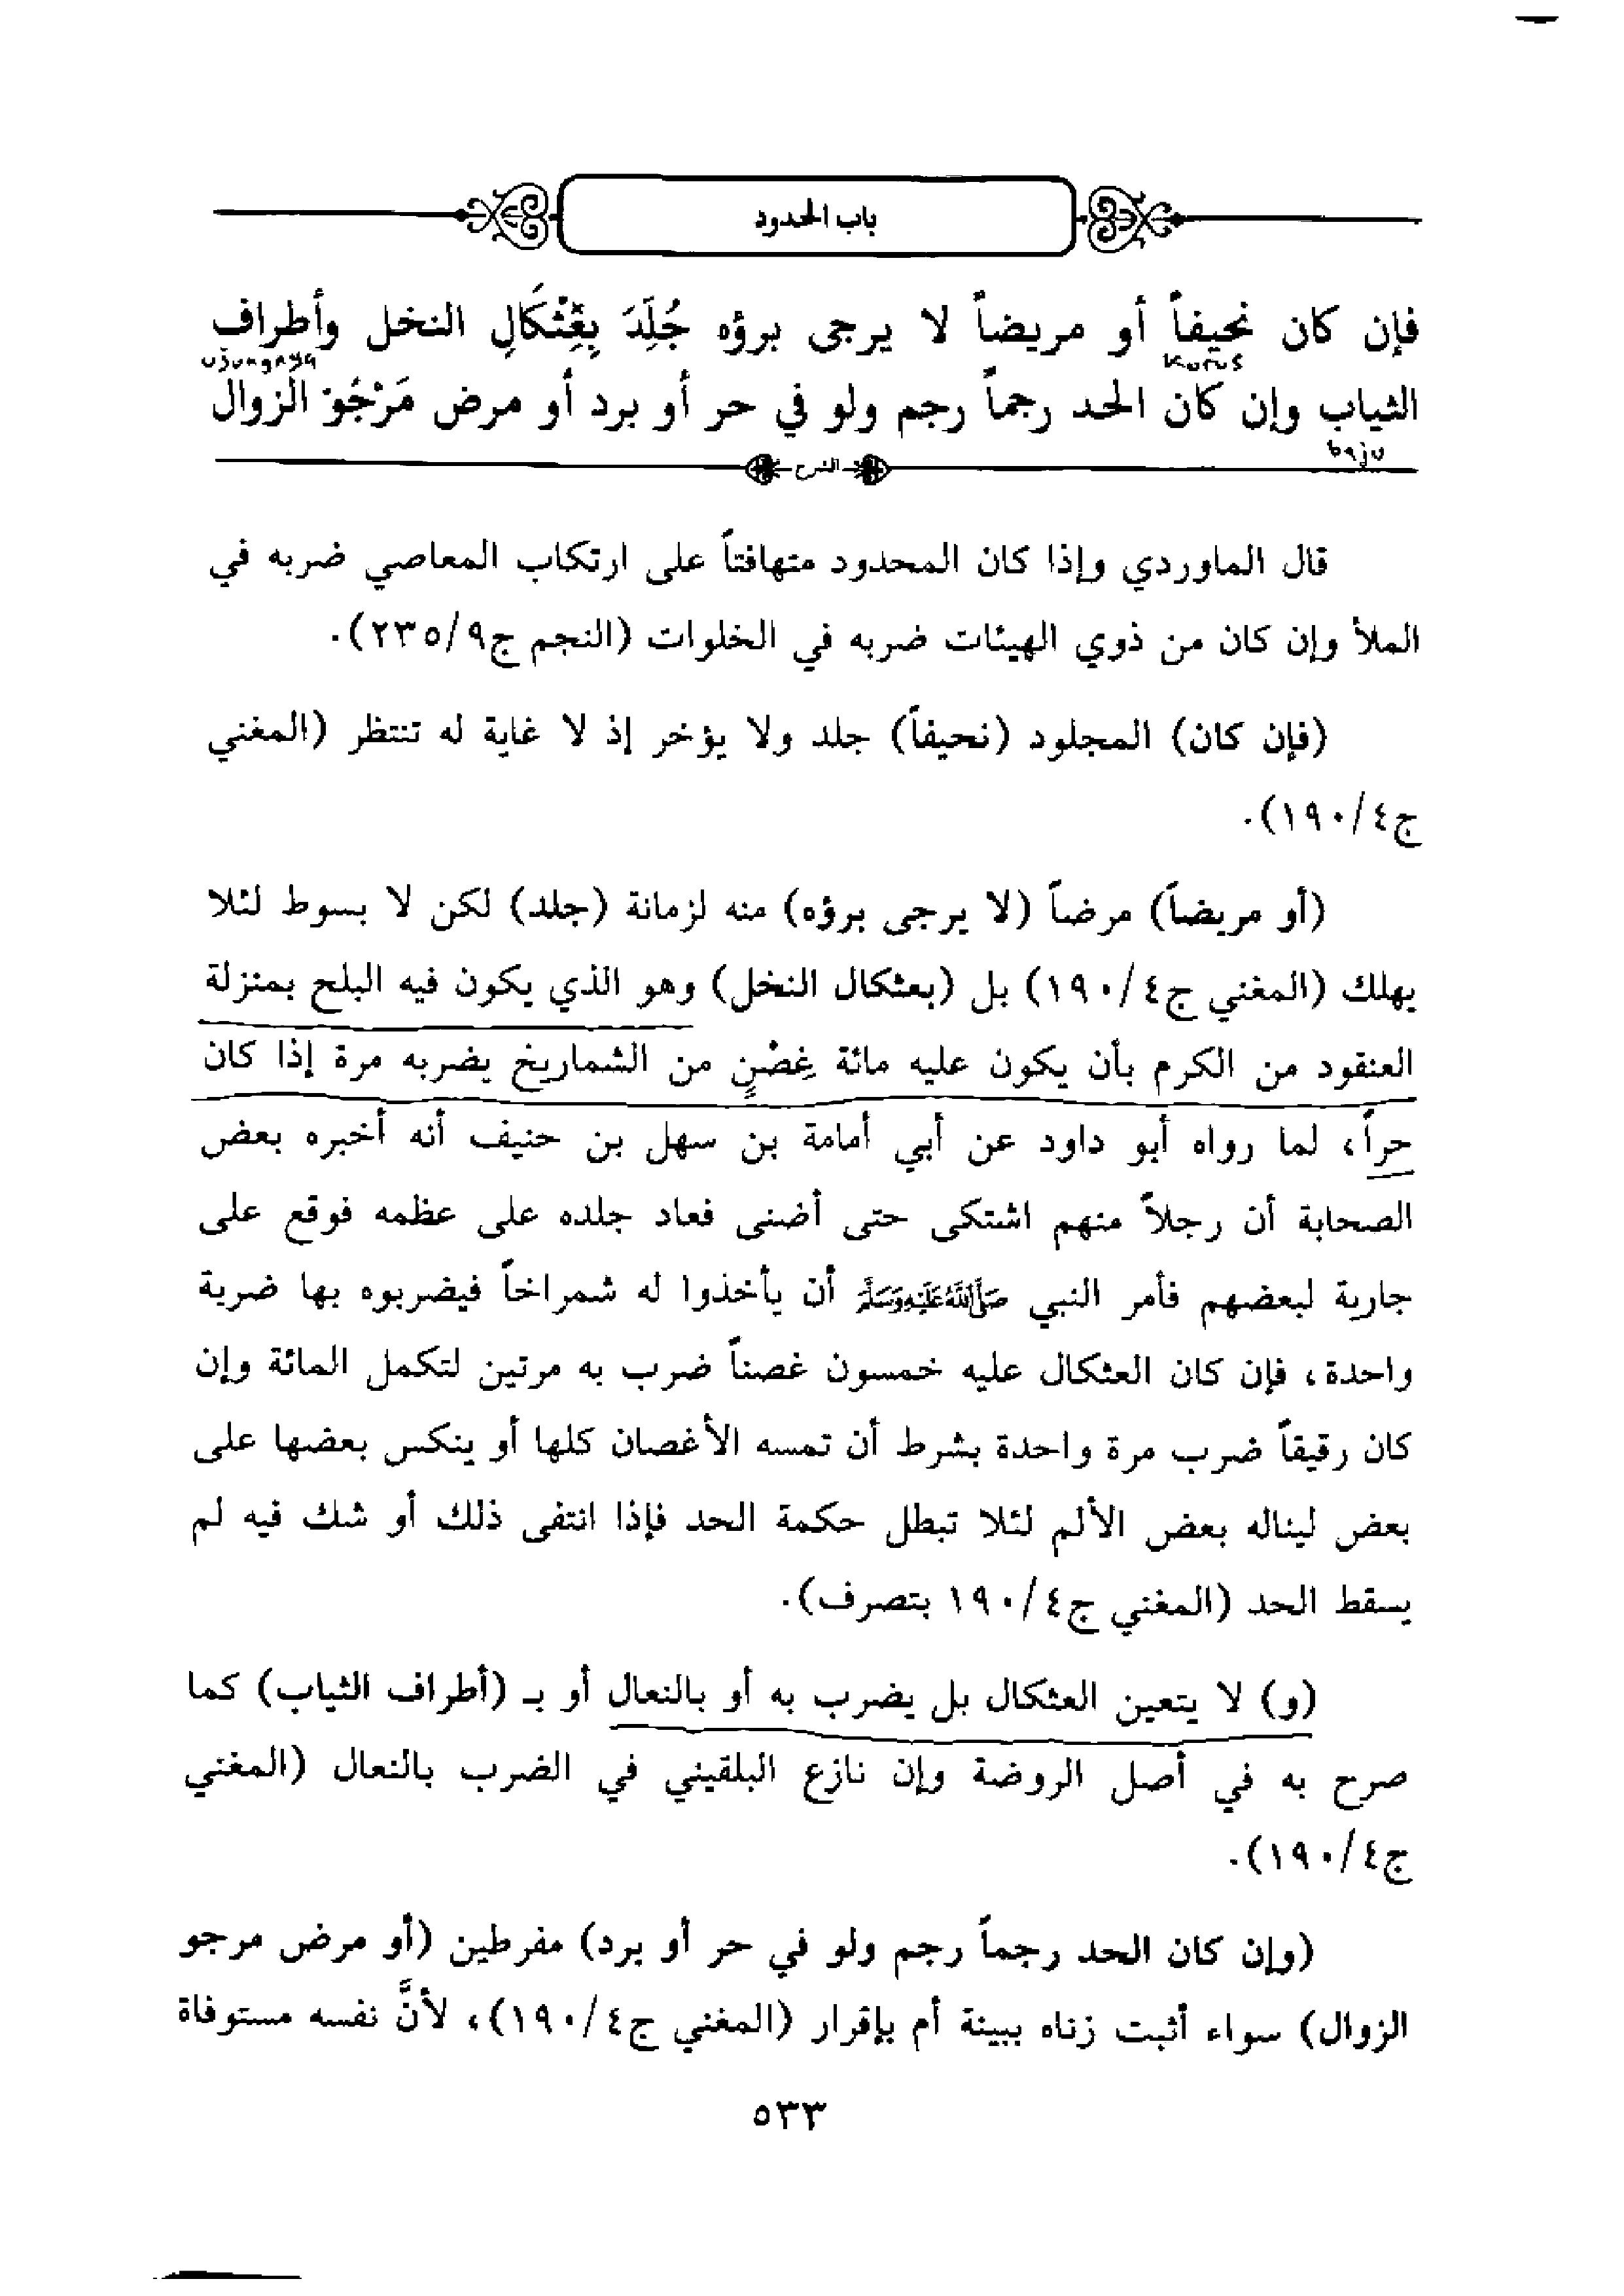 باب الحدود
فإن كان نحيفاً أو مريضاً لا يرجى برؤه جُلِدَ بِعِثْكَالِ النخل وأطراف
kurus ujungnya
الثياب وإن كان الحد رجماً رجم ولو في حر أو برد أو مرض مَرْجُوّ الزوال
baju
الشرح
قال الماوردي وإذا كان المحدود متهافتاً على ارتكاب المعاصي ضربه في
الملأ وإن كان من ذوي الهيئات ضربه في الخلوات (النجم ج٩/٢٣٥).
(فإن كان) المجلود (نحيفاً) جلد ولا يؤخر إذ لا غاية له تنتظر (المغني
ج٤/١٩٠).
(أو مريضاً) مرضاً (لا يرجى برؤه) منه لزمانة (جلد) لكن لا بسوط لئلا
يهلك (المغني ج٤/١٩٠) بل (بعثكال النخل) وهو الذي يكون فيه البلح بمنزلة
العنقود من الكرم بأن يكون عليه مائة غِصْنٍ من الشماريخ يضربه مرة إذا كان
حراً، لما رواه أبو داود عن أبي أمامة بن سهل بن حنيف أنه أخبره بعض
الصحابة أن رجلاً منهم اشتكى حتى أضنى فعاد جلده على عظمه فوقع على
جارية لبعضهم فأمر النبي صَلَّى اللَّهُ عَلَيْهِ وَسَلَّمَ أن يأخذوا له شمراخاً فيضربوه بها ضربة
واحدة، فإن كان العثكال عليه خمسون غصناً ضرب به مرتين لتكمل المائة وإن
كان رقيقاً ضرب مرة واحدة بشرط أن تمسه الأغصان كلها أو ينكس بعضها على
بعض ليناله بعض الألم لئلا تبطل حكمة الحد فإذا انتفى ذلك أو شك فيه لم
يسقط الحد (المغني ج٤/١٩٠ بتصرف).
(و) لا يتعين العثكال بل يضرب به أو بالنعال أو بـ (أطراف الثياب) كما
صرح به في أصل الروضة وإن نازع البلقيني في الضرب بالنعال (المغني
ج٤/١٩٠).
(وإن كان الحد رجماً رجم ولو في حر أو برد) مفرطين (أو مرض مرجو
الزوال) سواء أثبت زناه ببينة أم بإقرار (المغني ج٤/١٩٠)، لأنَّ نفسه مستوفاة
٥٣٣